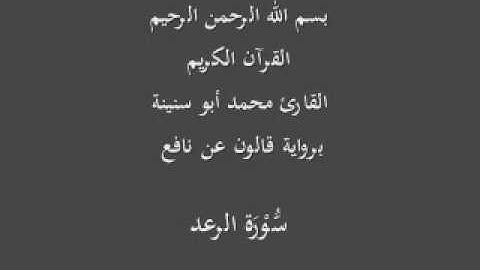 بسم الله الرحمن الرحيم
القرآن الكريم
القارئ محمد أبو سنينة
برواية قالون عن نافع
سُّوْرَة الرعد